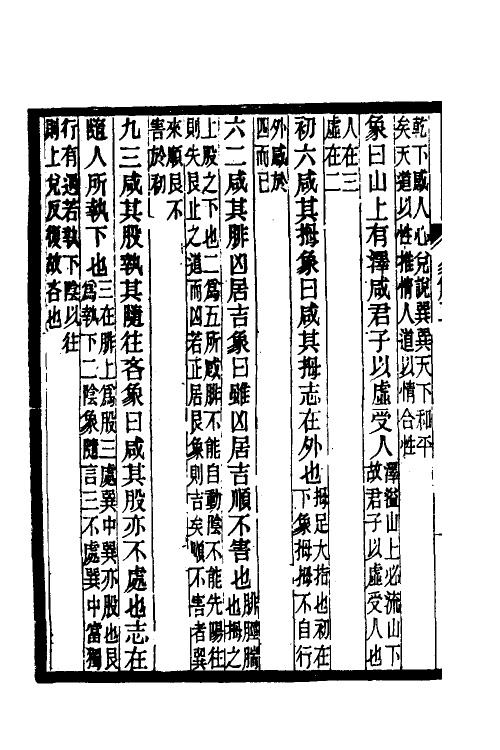 乾下感人心兌說巽巽天下和平
矣天道以性推情人道以情合性
象曰山上有澤咸君子以虛受人澤溢山上必流山下
故君子以虛受人也
人在三
虛在二
初六咸其拇象曰咸其拇志在外也拇足大指也初在
下象拇拇不自行
外感於
四而已
六二咸其腓凶居吉象曰雖凶居吉順不害也腓腨腸
也拇之
上股之下也二爲五所感腓不能自動陰不能先陽往
則失艮止之道而凶若正居艮象則吉矣順不害者巽
來順艮不
害於初
九三咸其股執其隨往吝象曰咸其股亦不處也志在
隨人所執下也三在腓上爲股三處巽中巽亦股也艮
爲執下二陰象隨言三不處巽中當獨
行有遇若執下陰以往
則上兌反復故吝也